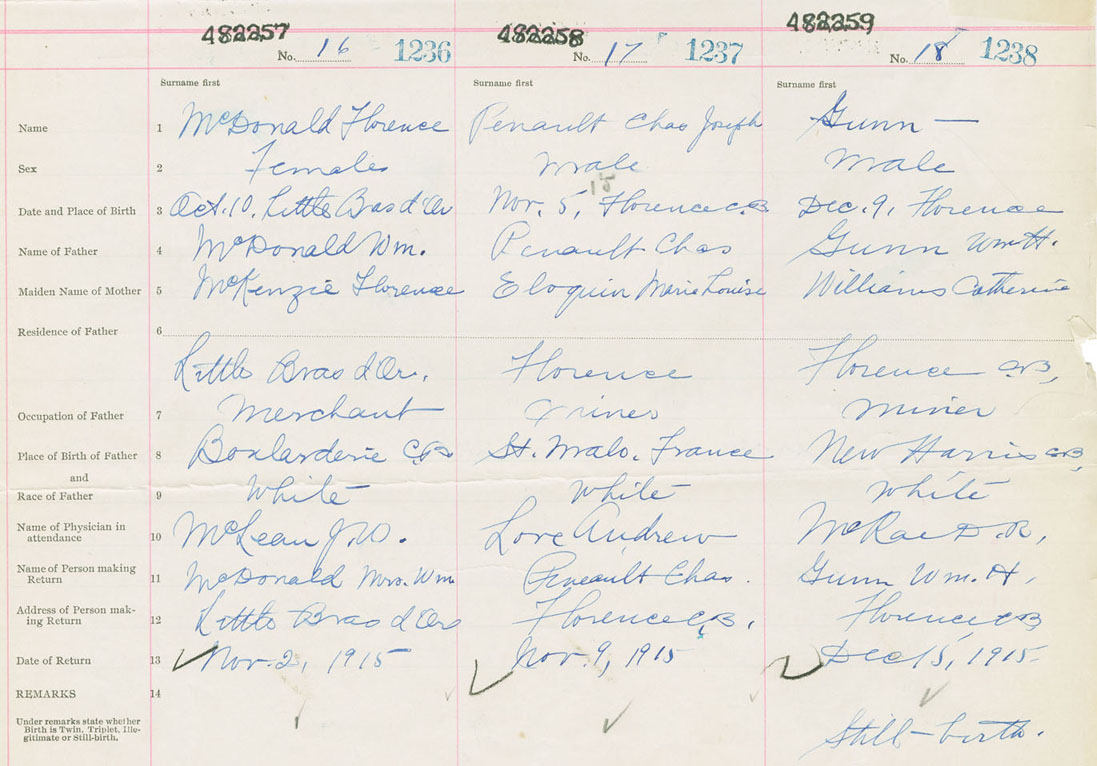 482257 482258 482259
No. 16 1236 No. 17 1237 No. 18 1238
Surname first Surname first Surname first
Name 1 McDonald Florence Penault Chas Joseph Gunn —
Sex 2 Females male male
15
Date and Place of Birth 3 Oct. 10, Little Bras d'Or Nov. 5, Florence C.B Dec. 9, Florence
Name of Father 4 McDonald Wm. Penault Chas Gunn Wm H.
Maiden Name of Mother 5 McKenzie Florence Eloquin Marie Louise Williams Catherine
Residence of Father 6
Little Bras d'Or. Florence Florence C.B,
Occupation of Father 7 Merchant miner
Place of Birth of Father 8 Boularderie C.B St. Malo. France New Harris C.B,
and
Race of Father 9 White White White
Name of Physician in
attendance 10 McLean J.W. Love Andrew McRae D. R,
Name of Person making
Return 11 McDonald Mrs. Wm Peneault Chas. Gunn Wm. H,
Address of Person mak-
ing Return 12 Little Bras d'Or Florence C.B, Florence, C.B
Date of Return 13 Nov. 2, 1915 Nov. 9, 1915 Dec 15, 1915.
REMARKS 14
Under remarks state whether
Birth is Twin. Triplet. Ille-
gitimate or Still-birth.
Still-birth.